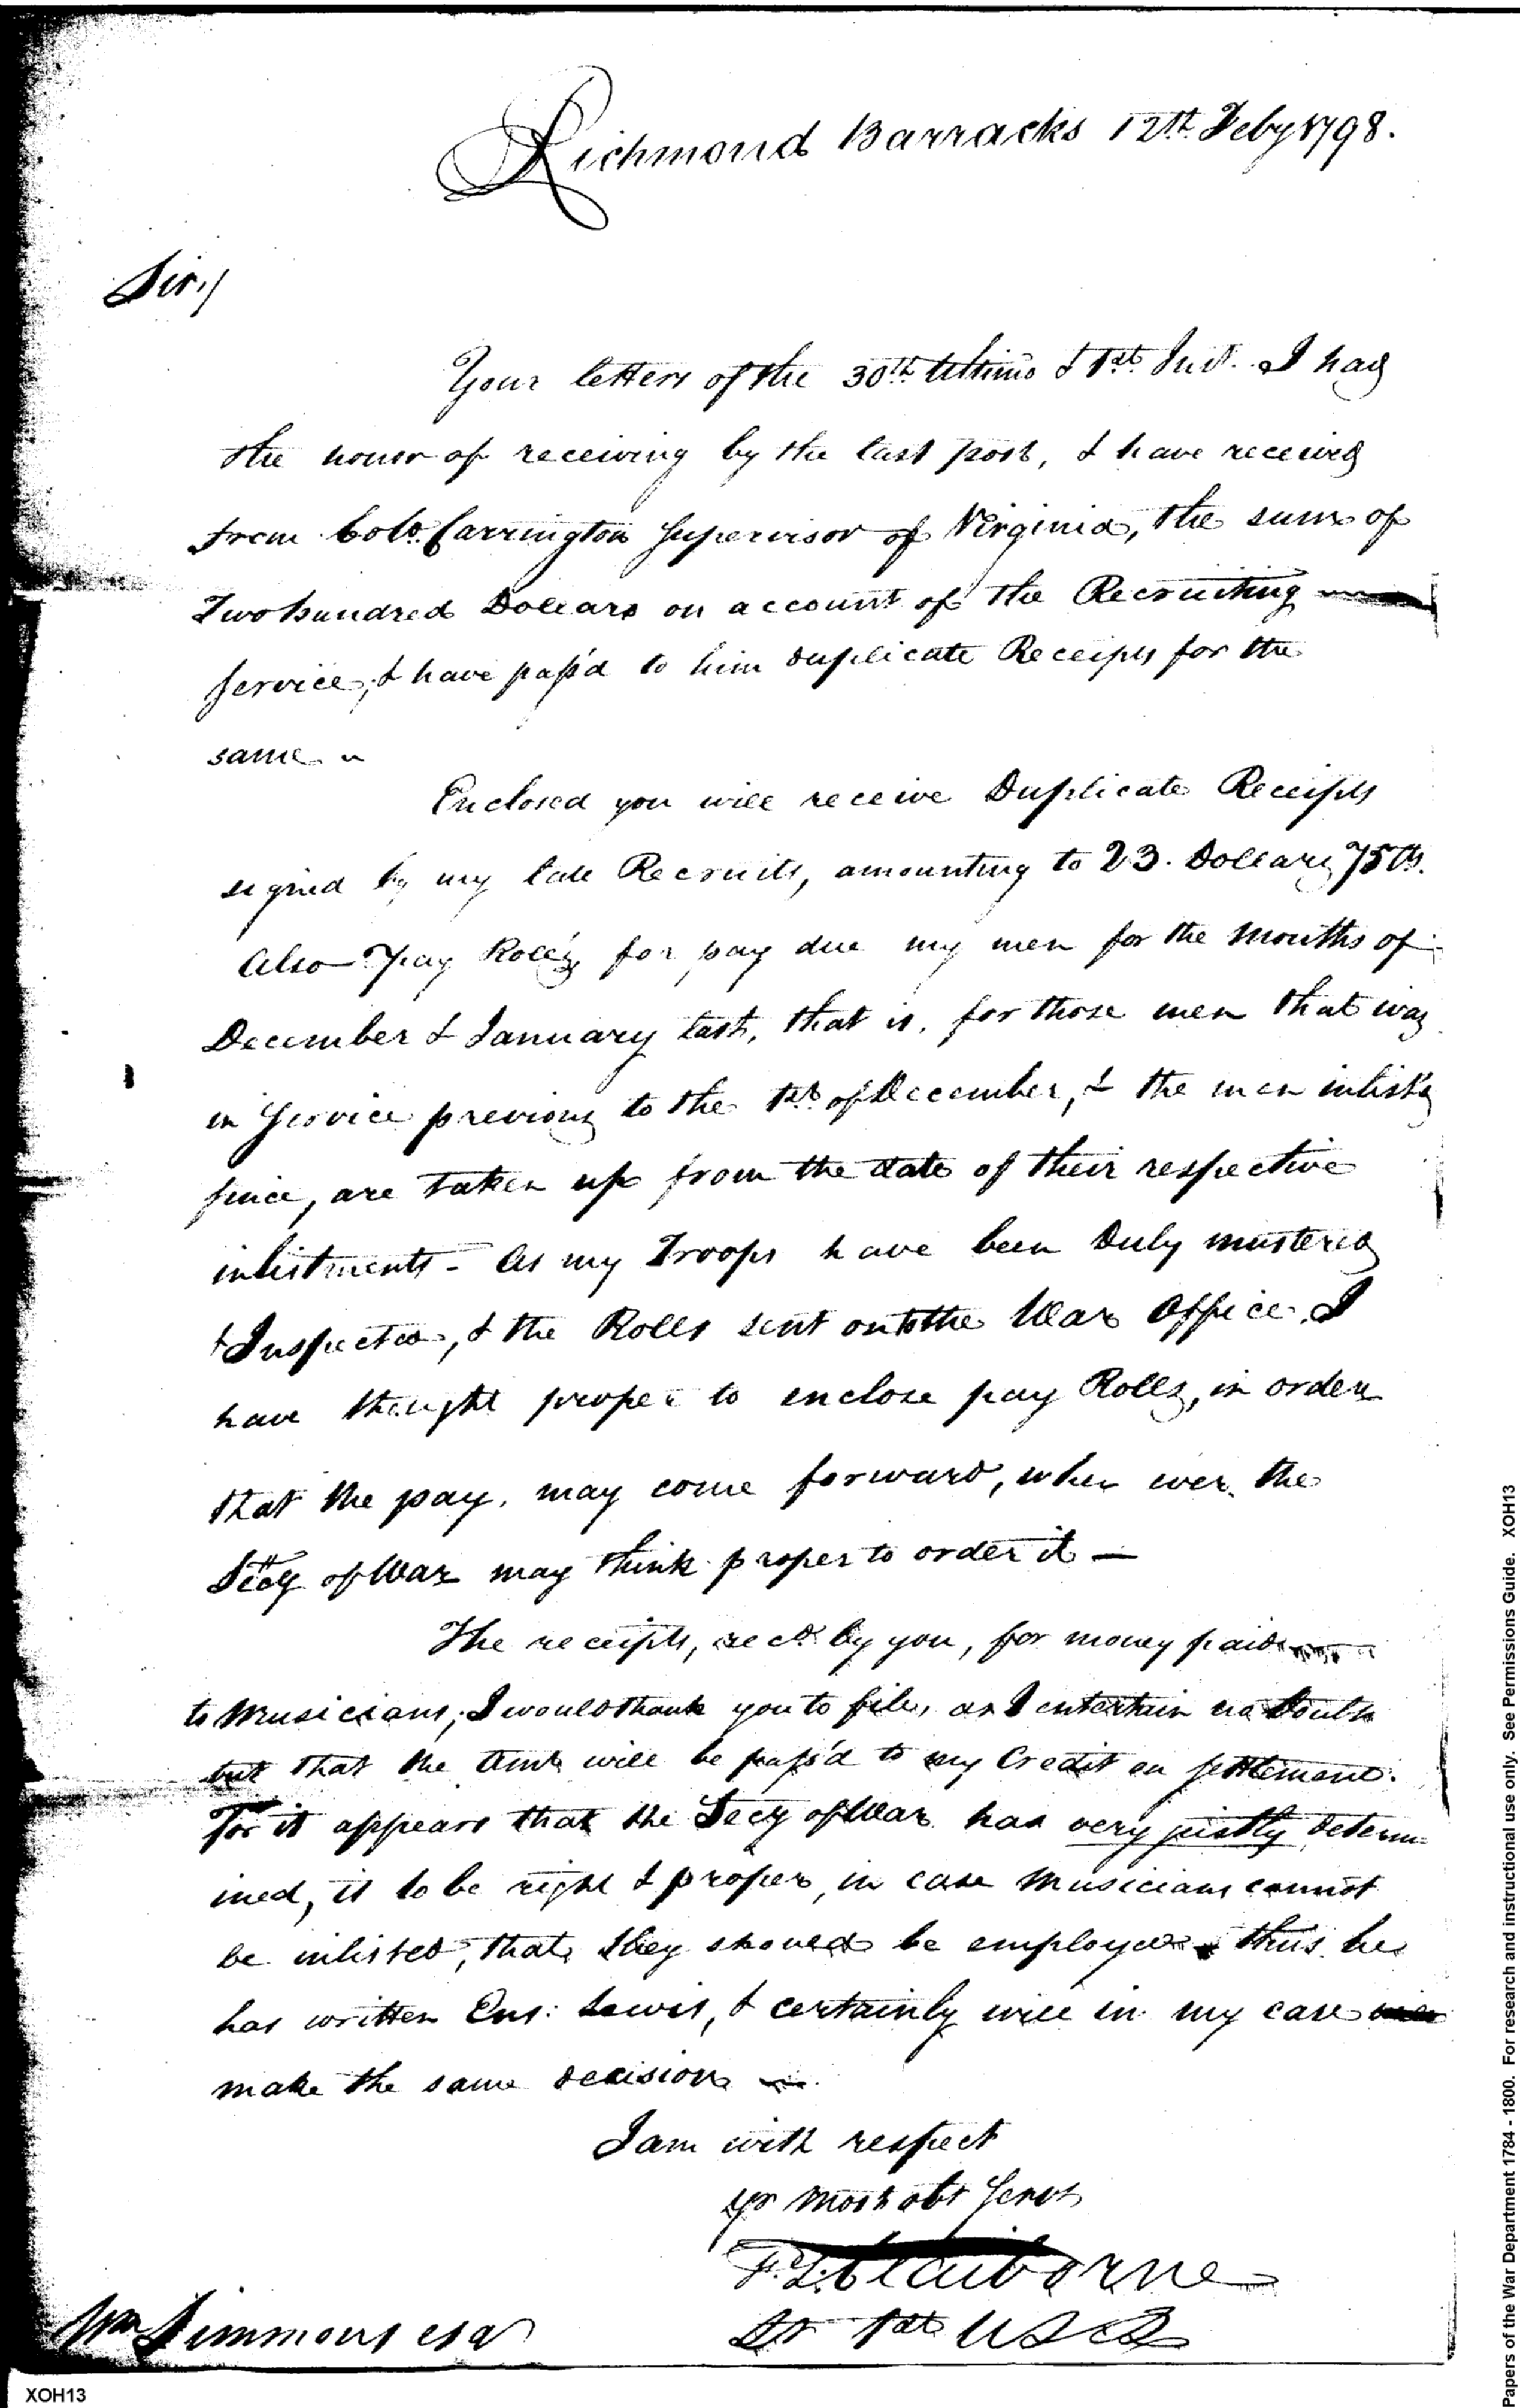 Richmond Barracks 12th. Feby 1798.
Sir,/
Your letters of the 30th. Ultimo & 1st. Inst. I had
the honor of receiving by the last post, I have received
from Colo. Carrington Supervisor of Virginia, the sum of
Two hundred Dollars on account of the Recruiting
service, & have pass'd to him duplicate Receipts for the
same
Enclosed you will receive Duplicate Receipts
signed by my late Recruits, amounting to 23. Dollars 75 Cts.
Also Pay Rolls for pay due my men for the months of
December & January last, that is, for those men that was
in Service previous to the 1st of December, & the men inlist'd
since, are taken up from the date of their respective
inlistments - As my Troops have been Duly mustered
& Inspected, & the Rolls sent on to the War Office, I
have thought proper to enclose pay Rolls, in order
that the pay, may come forward, when ever the
Secy of War may think proper to order it —
The receipts, recd. by you, for money paid
to Musicians, I would thank you to file, as I entertain no doubt
but that the Amt will be pass'd to my Credit on settlement.
For it appears that the Secy of War has very justly determ-
ined, it to be right & proper, in case Musicians cannot
be inlisted, that they should be employed thus he
has written Ens: Lewis, & certainly will in my case
make the same decision
I am with respect
yr most obt Servt
F. L. Claiborne
Lt 1st US
Wm Simmons esqr
XOH13
Papers of the War Department 1784 - 1800. For research and instructional use only. See Permissions Guide. XOH13